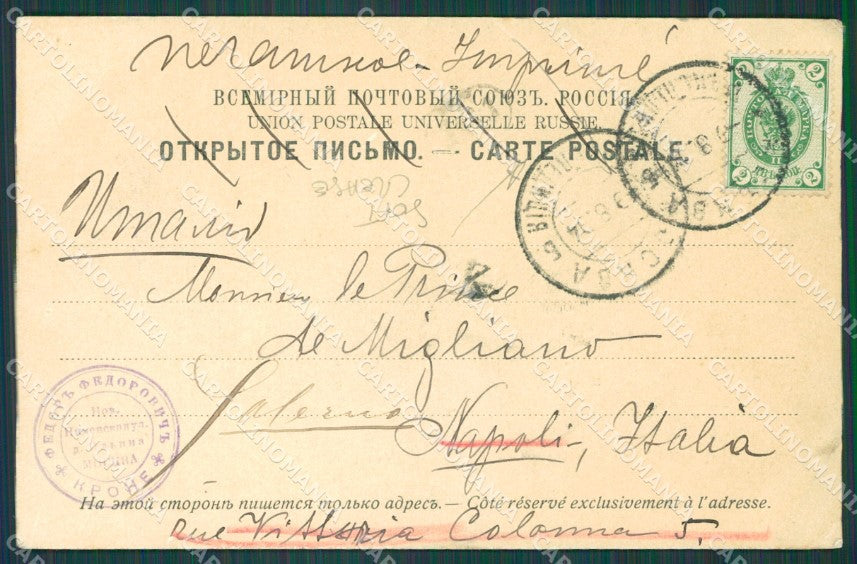 Печатное - Imprimé
ВСЕМІРНЫЙ ПОЧТОВЫЙ СОЮЗЪ. РОССІЯ.
UNION POSTALE UNIVERSELLE RUSSIE.
ОТКРЫТОЕ ПИСЬМО. — CARTE POSTALE
2 2
2 2
МОСКВА
Италія
Monsieur le Prince
de Migliano
Salerno
Napoli, Italia
ѲЕДОРЪ ѲЕДОРОВИЧЪ
МОСКВА
КРОНЕ
На этой сторонѣ пишется только адресъ. — Côté réservé exclusivement à l'adresse.
rue Vittoria Colonna 5.
CARTOLINOMANIA